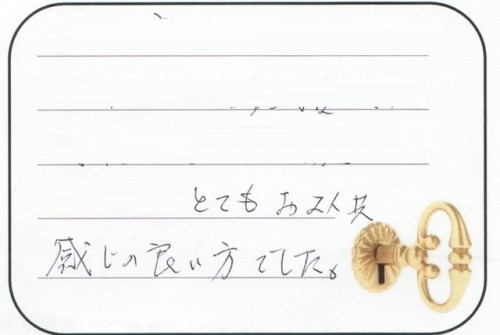 とてもお2人共
感じの良い方でした。